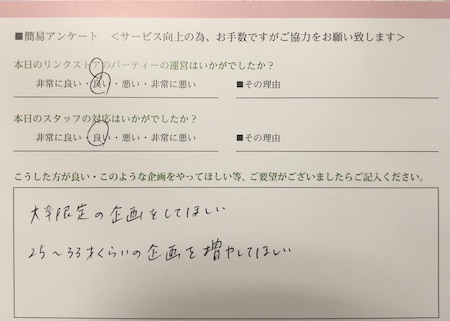 ■簡易アンケート ＜サービス向上の為、お手数ですがご協力をお願い致します＞
本日のリンクストアのパーティーの運営はいかがでしたか？
非常に良い・良い・悪い・非常に悪い ■その理由
本日のスタッフの対応はいかがでしたか？
非常に良い・良い・悪い・非常に悪い ■その理由
こうした方が良い・このような企画をやってほしい等、ご要望がございましたらご記入ください。
大卒限定の企画をしてほしい
25〜33才くらいの企画を増やしてほしい